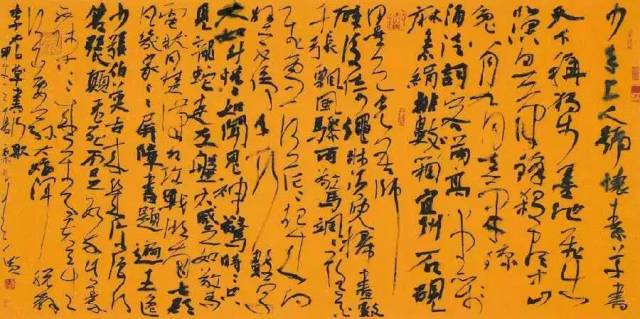 少年上人號懷素草書
天下稱獨步墨池飛出
北溟魚筆鋒殺盡中山
兔八月九月天氣涼
酒徒詞客滿高堂箋
麻素絹排數箱宣州石硯
墨色光吾師
醉後倚繩床須臾掃盡數
千張飄風驟雨驚颯颯落花
飛雪何茫茫起來向
壁不停手一行數字
大如斗恍恍如聞鬼神驚時時只
見龍蛇走左盤右蹙如驚
電狀同楚漢相攻戰湖南七郡
凡幾家家家屏障書題遍王逸
少張伯英古來幾許浪得
名張顛老死不足數我師此義
不師古古來萬事貴天生
何必要公孫大娘渾脫舞
李太白草書歌